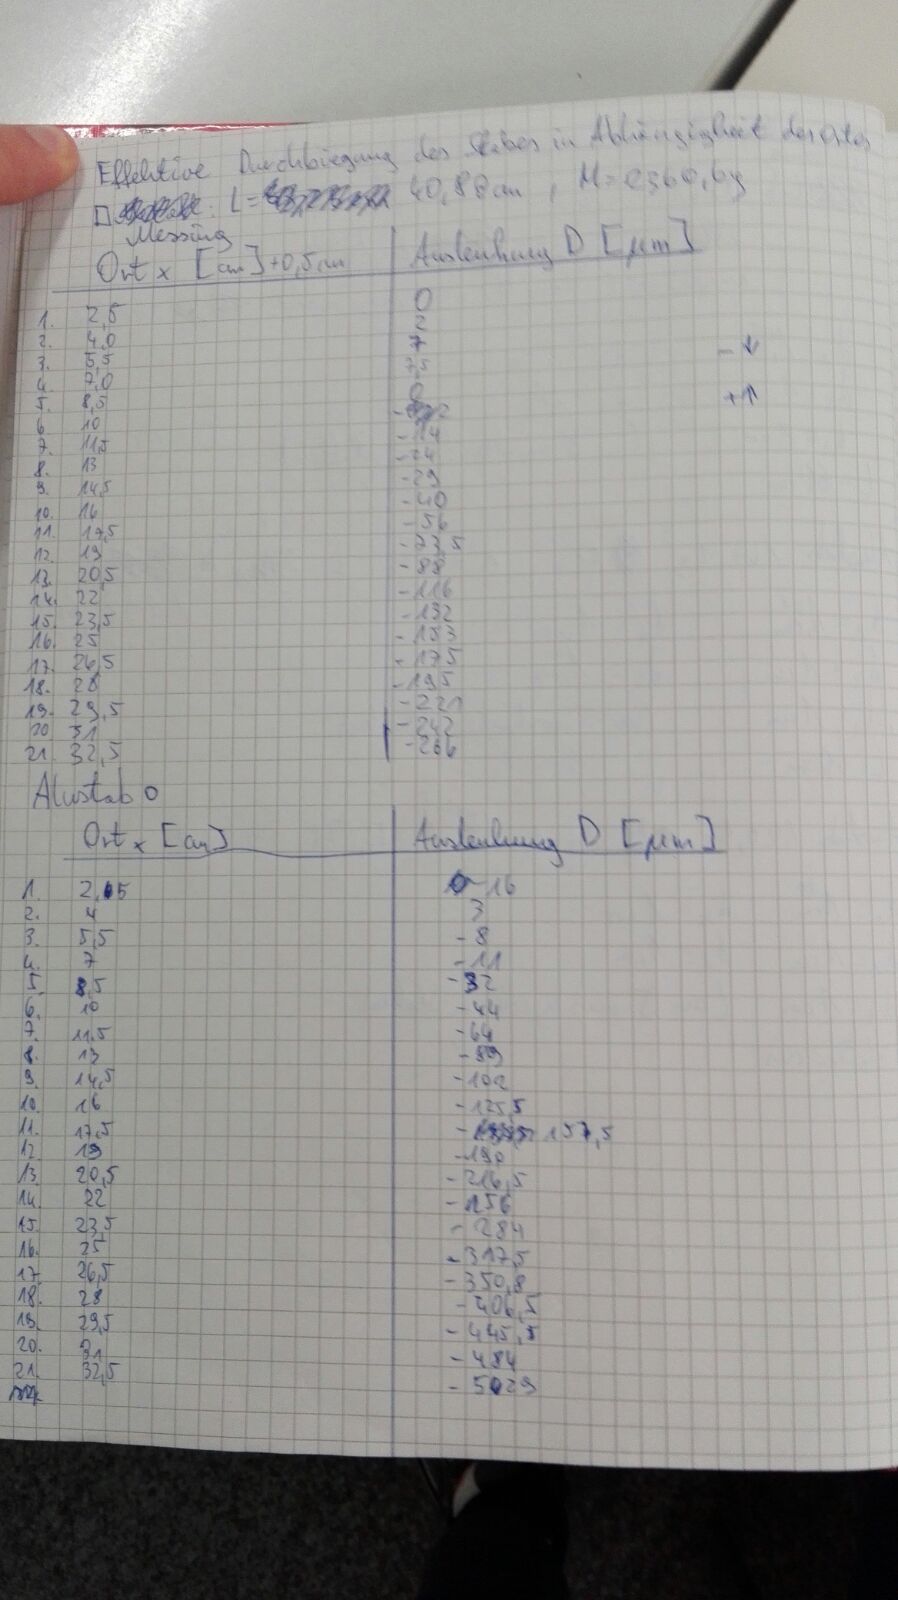 Effektive Durchbiegung des Stabes in Abhängigkeit des Ortes
L= 40,88cm, M=2360,6g
Messing
Ort x [cm]+0,5cm Auslenkung D [µm]
1. 2,5 0
2. 4,0 2
3. 5,5 7
4. 7,0 7,5
5. 8,5 0
6. 10
7. 11,5 -14
8. 13 -24
9. 14,5 -29
10. 16 -40
11. 17,5 -56
12. 19 -73,5
13. 20,5 -88
14. 22 -116
15. 23,5 -132
16. 25 -153
17. 26,5 -175
18. 28 -195
19. 29,5 -221
20 31 -242
21. 32,5 -266
- ↓
+ ↑
Alustab O
Ort x [cm] Auslenkung D [µm]
1. 16
2. 4 3
3. 5,5 -8
4. 7 -11
5. 8,5 -32
6. 10 -44
7. 11,5 -64
8. 13 -89
9. 14,5 -102
10. 16 -125,5
11. 17,5 -157,5
12 19 -190
13. 20,5 -216,5
14. 22 -256
15. 23,5 -284
16. 25 -317,5
17. 26,5 -350,8
18. 28 -406,5
19. 29,5 -445,5
20. 31 -484
21. 32,5